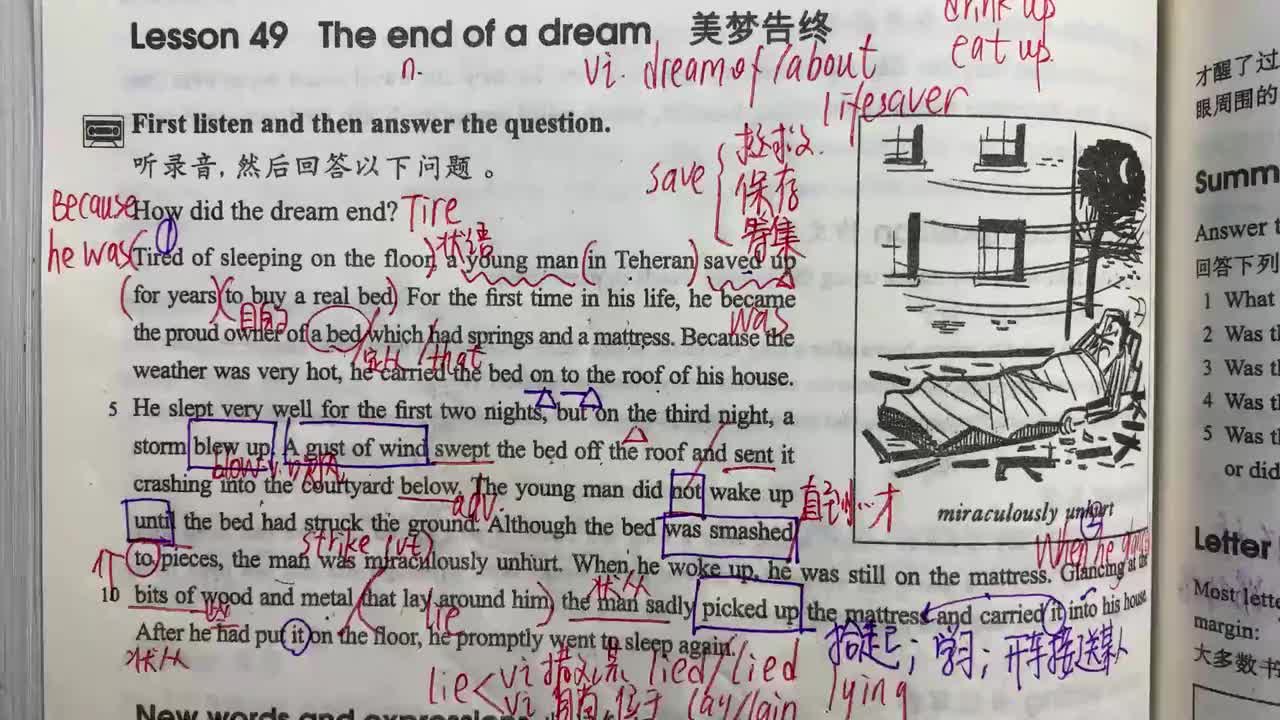 Lesson 49 The end of a dream 美梦告终
drink up
eat up
n.
vi. dream of/about
lifesaver
First listen and then answer the question.
听录音，然后回答以下问题。
save
拯救
保存
筹集
Because
How did the dream end?
Tire
he was
状语
Tired of sleeping on the floor, a young man in Teheran saved up
for years to buy a real bed. For the first time in his life, he became
目的
was
the proud owner of a bed which had springs and a mattress. Because the
定从
that
weather was very hot, he carried the bed on to the roof of his house.
5 He slept very well for the first two nights, but on the third night, a
storm blew up. A gust of wind swept the bed off the roof and sent it
blow
crashing into the courtyard below. The young man did not wake up
adv.
直到...才
until the bed had struck the ground. Although the bed was smashed
strike (vt)
to pieces, the man was miraculously unhurt. When he woke up, he was still on the mattress. Glancing at the
When he
状从
10 bits of wood and metal that lay around him, the man sadly picked up the mattress and carried it into his house.
lie
After he had put it on the floor, he promptly went to sleep again.
状从
拾起; 学习; 开车接送某人
lie
vi 撒谎 lied/lied
lying
vi 躺 位于 lay/lain
New words and expressions
miraculously unhurt
才醒了过
眼周围的
Summ
Answer t
回答下列
1 What
2 Was th
3 Was th
4 Was th
5 Was th
or did
Letter
Most lette
margin:
大多数书